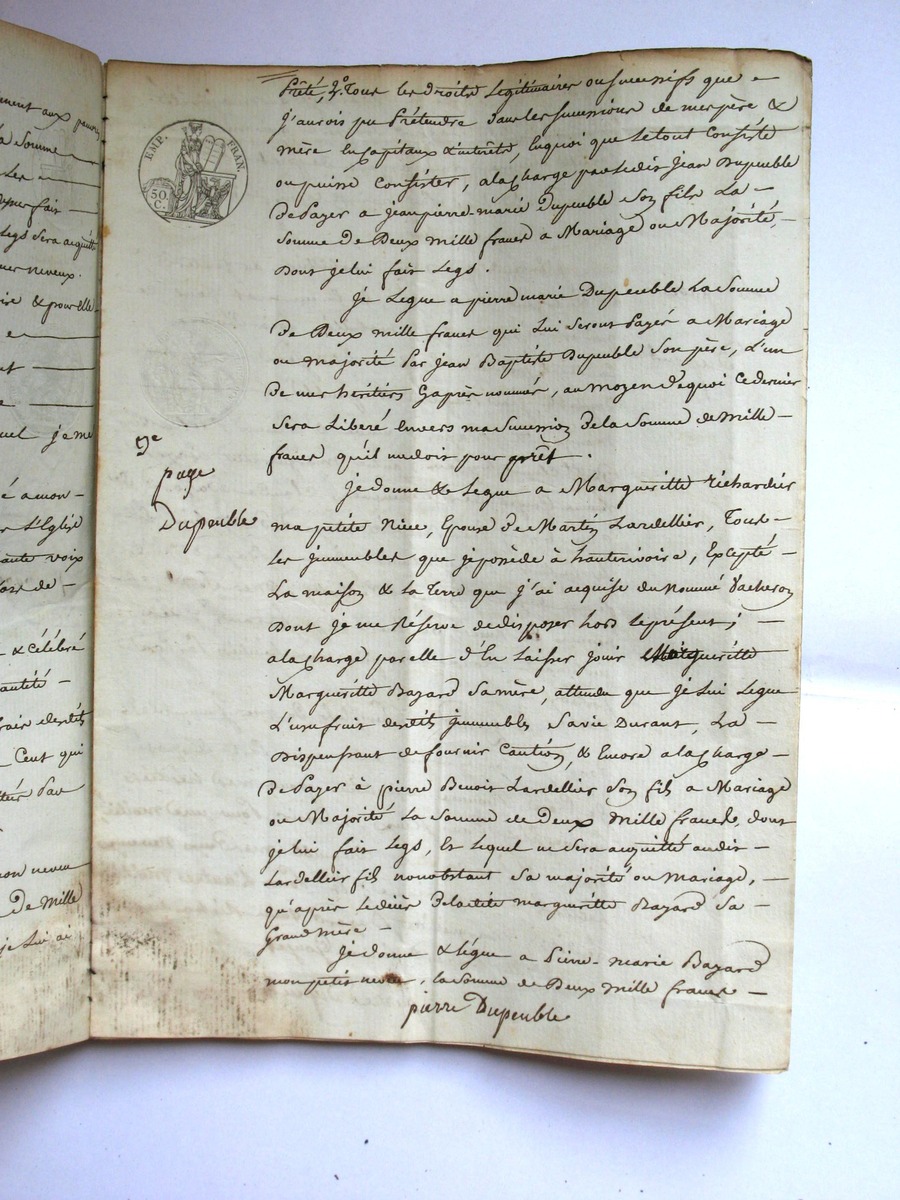 ment aux pauvres
la Somme
Les
Legs Sera acquitté
mes neveux.
& pour elle
quel je me
é a mon
r L'Eglise
haute voix
& Célébré
Cent qui
mon neveu
De Mille
je Lui ai
EMP. FRAN.
50 C.
Prêté, 2°. Tous les droits Légitimaires ou successifs que
j'aurois pu Prétendre dans les successions de mes père &
mère En Capitaux & intérêts, En quoi que le tout Consiste
ou puisse Consister, a la Charge par le dit Jean Dupeuble
De Payer a jean pierre-marie Dupeuble Son fils La
Somme De Deux mille francs a Mariage ou Majorité,
Dont je lui fais Legs.
Je Legue a pierre marie Dupeuble La Somme
De Deux mille francs qui Lui seront Payés a Mariage
ou majorité Par Jean Baptiste Dupeuble Son père, L'un
De mes héritiers Cy après nommés, au moyen de quoi Ce dernier
Sera Libéré Envers ma Succession De la Somme de Mille
francs qu'il me doit pour prêt.
5e
page
Dupeuble
Je donne & Legue a Margueritte Richardier
ma petite Niece, Epouse de Martin Lardellier, Tous
Les immeubles que je possède à hauterivoire, Excepté
La maison & La Terre que j'ai acquise du Nommé Vacheron
Dont je me Réserve de disposer hors le présent;
a la Charge par elle d'En Laisser jouir
Margueritte Bazard Sa mère, attendu que je Lui Legue
L'usufruit des dits immeubles Sa vie Durant, La
Dispensant de fournir Caution, & Encore a la Charge
De Payer à pierre Benoit Lardellier Son fils a Mariage
ou Majorité La Somme de Deux Mille francs, dont
je lui fais Legs, Et Lequel ne Sera acquitté audit
Lardellier fils nonobstant Sa majorité ou Mariage,
qu'après le décès De la dite margueritte Bazard Sa
Grand Mère
Je donne & Légue a Pierre-marie Bazard
mon petit neveu, la Somme de Deux mille francs
pierre Dupeuble